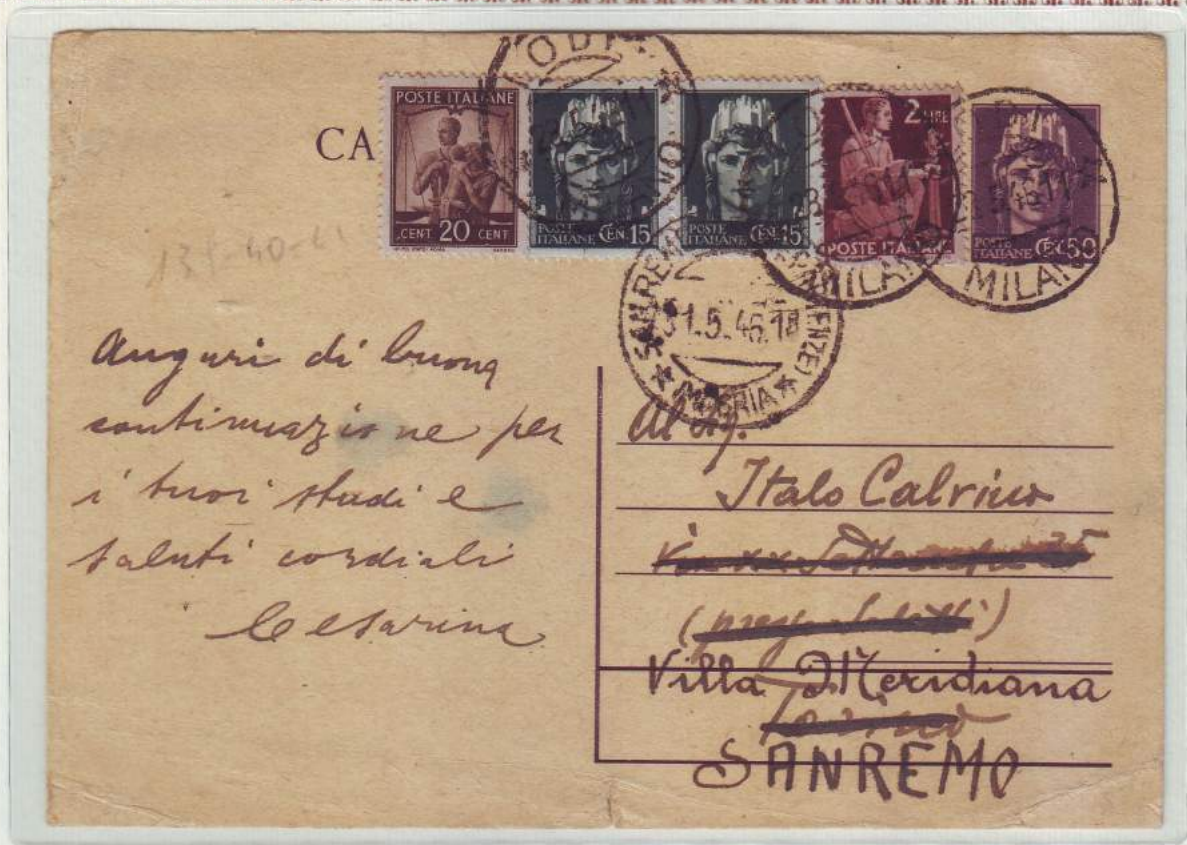 CA
POSTE ITALIANE
CENT 20 CENT
POSTE ITALIANE CEN. 15
POSTE ITALIANE CEN. 15
2 LIRE
POSTE ITALIANE
POSTE ITALIANE CEN. 50
LODI
MILANO
MILANO
MILANO
SANREMO
31.5.46.18
IMPERIA
139-40-41
Auguri di buona
continuazione per
i tuoi studi e
saluti cordiali
Cesarina
Al sig.
Italo Calvino
Via xx Settembre
(presso)
Villa Meridiana
Torino
SANREMO